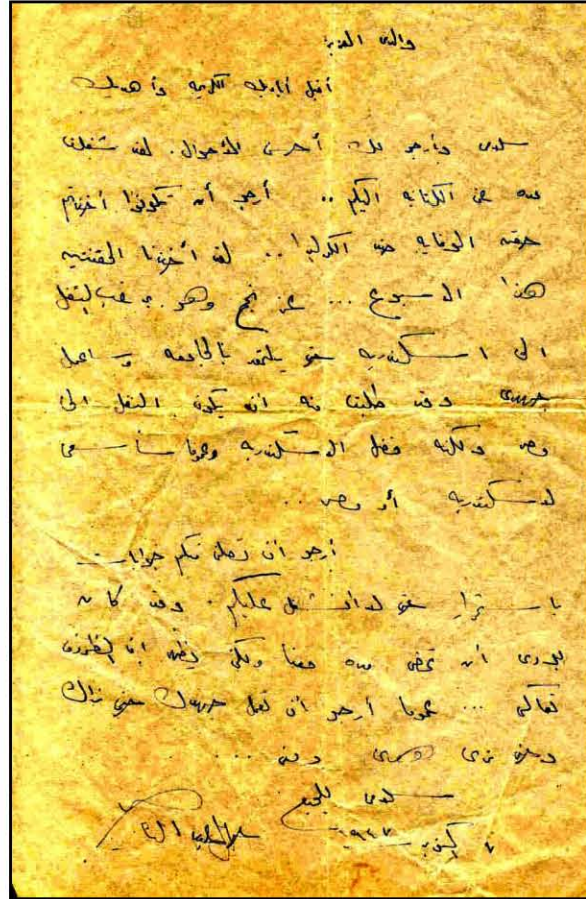 والدى العزيز
أقبل أياديك الكريمه وأهديك
سلامى وأرجو لك أحسن الأحوال. لقد شغلت
مده عن الكتابه اليكم .. أرجو أن تكونوا أخذتم
حقنه الوقايه ضد الكوليرا .. لقد أخذنا الحقنتين
هذا الاسبوع ... عن نجم وهو يرغب النقل
الى اسكندريه حتى يلتحق بالجامعه وساعمل
جهدى وقد طلبت منه أن يكون النقل الى
مصر ولكنه فضل الاسكندريه وعموما سأسعى
لاسكندريه أو مصر ..
أرجو أن تصلنى منكم خوابات
باستمرار حتى لا أنشغل عليكم. وقد كان
بودى أن تمضى مده معنا ولكن يظهر ان الظروف
تعاكس ... عموما أرجو أن تعمل جهدك حتى نراك
وحتى نرى
سلامى للجميع
٧ أكتوبر ١٩٤٧